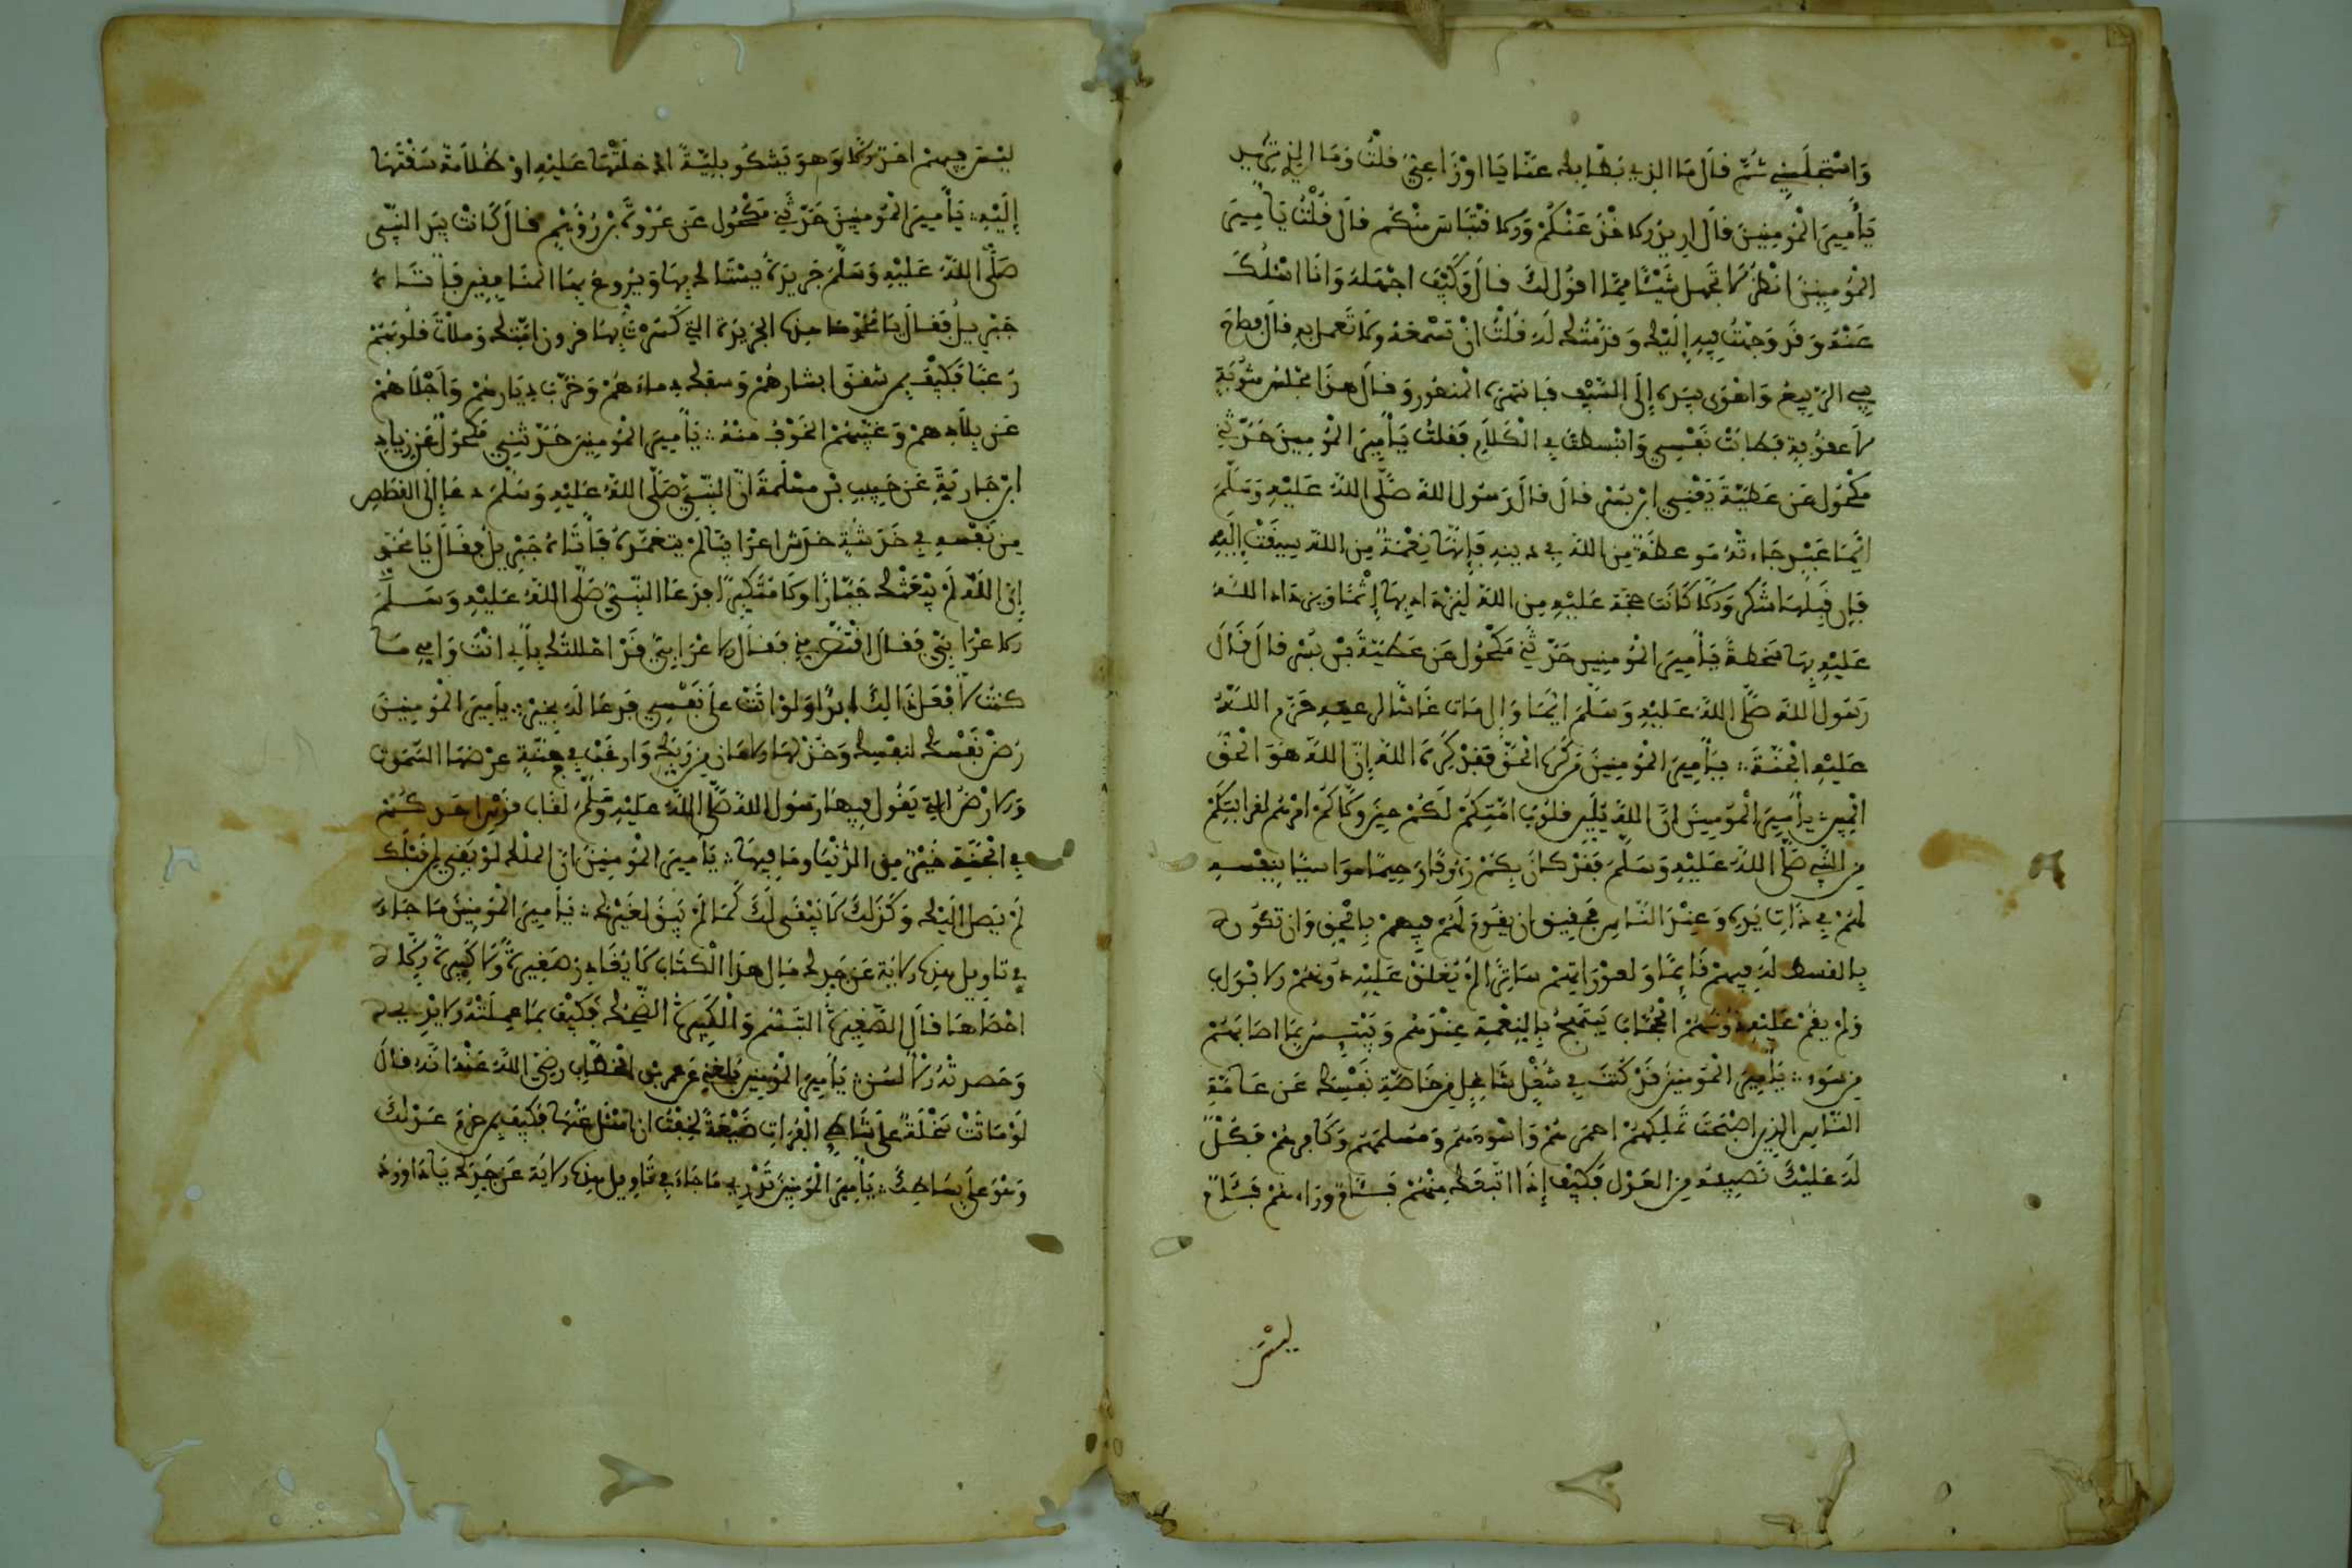 وَاسْتَجْلَسَنِي ثُمَّ قَالَ مَا الذِي بَطَّا بِكَ عَنَّا يَا اوْزَاعِيُّ قلْتُ وَمَا الذِي تُرِيد
يَأَمِيرَ الْمُومِنِينَ قَالَ اريدُ الاخْذَ عَنْكُمْ وَالاقْتِبَاسَ مِنْكُم قالَ قُلْتُ يَأَمِيرَ
الْمُومِنِينَ انْظُرْ لَا تَجْهَل شَيْئًا مِمَّا اقُول لكَ قالَ وَكَيْفَ اجْهَلهُ وَانَا اسْئلُكَ
عَنْهُ وَقَد وَجَّهْتُ فِيهِ إِلَيْكَ وَقَدَّمْتُكَ لَهُ قُلْتُ انْ تَسْمَعَهُ وَلَا تَعْمل بِهِ قالَ فصَاحَ
بِي الرَّبِيعُ وَاهْوَى بِيَدِهِ إِلَى السَّيْفِ فَانتَهَرَهُ الْمَنصُورُ وَقَالَ هَذَا مَجْلسُ مَثُوبَةٍ
لَا عقُوبَةٍ فَطابَتْ نَفْسِي وَانبَسطتُ فِي الْكَلَامِ فَقلتُ يَأَمِيرَ الْمُومِنِينَ حَدَّثَنِي
مَكْحُول عَن عَطِيَّةَ يَعْنِي ابْنَ بُسْرٍ قالَ قالَ رَسُول اللهِ صَلَّى اللهُ عَلَيْهِ وَسَلَّمَ
ايُّمَا عَبْدٍ جَاءتْهُ مَوعظَةٌ مِنَ اللهِ فِي دِينِهِ فَإِنَّهَا نِعْمَةٌ مِنَ اللهِ سِيقَتْ إِلَيْهِ
فَإِن قَبِلَهَا بشُكْرٍ وَالا كَانَت حُجَّةً عَلَيْهِ مِنَ اللهِ لِيَزْدَادَ بِهَا إِثْمًا وَيَزدَادَ اللهُ
عَلَيْهِ بِهَا سَخطةً يَأَمِيرَ الْمُومِنِينَ حَدَّثَنِي مَكْحُول عَن عَطِيَّةَ بْنِ بُسْرٍ قالَ قَالَ
رَسُول اللهِ صَلَّى اللهُ عَلَيْهِ وَسَلَّمَ ايُّمَا وَالٍ مَاتَ غَاشًّا لرَعِيَّتِهِ حَرَّمَ اللهُ
عَلَيْهِ الْجَنَّةَ ؞ يَأَمِيرَ الْمُومِنِينَ مَن كَرِهَ الْحَقَّ فَقَدْ كَرِهَ اللهَ إِنَّ اللهَ هُوَ الْحَقُّ
الْمُبِين يأَمِيرَ الْمُومِنِينَ انَّ الذِي لَيَّنَ قلُوبَ امَّتِكُمْ لَكُمْ حِينَ وَلَّاكُمْ امْرَهُم لقرابَتِكُمْ
مِنَ النَّبِي صَلَّى اللهُ عَلَيْهِ وَسَلَّمَ فَقَدْ كانَ بِهِمْ رَءُوفًا رَحِيمًا مُوَاسِيًا بِنَفْسِهِ
لَهُمْ فِي ذَاتِ يَدِهِ وَعِنْدَ النَّاسِ فَحَقِيقٌ ان يَقُومَ لَهُمْ فِيهِمْ بِالْحَقِّ وَان تكُونَ
بِالقسط لَهُ فِيهِمْ قَائِمًا وَلعَوْرَاتِهِمْ سَاتِرًا لَمْ يُغْلقْ عَلَيْهِ دُونَهُمْ الابْوَاب
وَلَمْ يقُمْ عَلَيْهِ دُونَهُمْ الْحُجَّاب يَبْتَهِجُ بِالنِّعْمَةِ عِنْدَهُم وَيَبْتَئِسُ بِمَا اصَابَهُمْ
مِن سَوْءٍ ؞ يَأَمِيرَ الْمُومِنِينَ قَدْ كُنْتَ فِي شُغْلٍ شَاغِلٍ مِن خَاصَّةِ نَفْسِكَ عَن عَامَّةِ
النَّاسِ الذِينَ اصْبَحْتَ تَملِكُهُمْ احمَرهُمْ وَاسْوَدهُمْ وَمُسْلمهُمْ وَكَافِرهُمْ فَكُلٌّ
لَهُ عَلَيْكَ نَصِيبُهُ مِنَ العَدْل فَكَيْفَ إِذَا اتَّبَعَكَ مِنْهُمْ فِئَامٌ وَرَاءهُمْ فِئَامٌ
ليْسَ
ليْسَ فِيهِمْ احَدٌ الا وَهوَ يَشكُو بَلِيَّةً ادْخَلتَهَا عَلَيْهِ اوْ ظُلَامَةً سُقْتَهَا
إِلَيْهِ ؞ يَأَمِيرَ الْمُومِنِينَ حَدَّثَنِي مَكْحُول عَن عُرْوَةَ بْنِ رُوَيْمٍ قالَ كَانتْ بِيَدِ النَّبِي
صَلَّى اللهُ عَلَيْهِ وَسَلَّمَ جَرِيدَةٌ يسْتَاكُ بِهَا وَيُرَوِّعُ بِهَا الْمُنَافِقِينَ فَأَتَاهُ
جِبْرِيلُ فَقَالَ يَا مُحَمَّد مَا هذِهِ الجَرِيدَةُ التِي كَسَرْتَ بِهَا قرُونَ امَّتِكَ وَملأتَ قلُوبَهُمْ
رُعبًا فَكَيْفَ بِمَن شقَّقَ ابشارهُمْ وَسفكَ دِماءهُمْ وَخرَّبَ دِيَارهُمْ وَأَجْلَاهُمْ
عَن بِلَادِهِمْ وَغَيَّبَهُمْ الخَوْفُ مِنْهُ ؞ يَأَمِيرَ الْمُومِنِينَ حَدَّثَنِي مَكْحُولٌ عَن زِيَادِ
ابْنِ جَارِيَةَ عَن حَبِيبِ بْنِ مَسْلَمَةَ انَّ النَّبِيَّ صَلَّى اللهُ عَلَيْهِ وَسَلَّمَ دعَا إِلَى القصَاصِ
مِن نَفْسِهِ فِي خَدْشَةٍ خَدَشَ اعْرَابِيًّا لَمْ يَتَعَمَّدْهُ فَأَتَاهُ جِبْرِيلُ فَقَالَ يَا مُحَمَّد
إِنَّ اللهَ لَمْ يَبْعَثْكَ جَبَّارًا وَلَا مُتَكَبِّرًا فَدَعَا النَّبِيُّ صَلَّى اللهُ عَلَيْهِ وَسَلَّمَ
الاعْرَابِيَّ فَقالَ اقْتَصَّ مِنِّي فَقَالَ الاعْرَابِيُّ قَدْ احْلَلتُكَ بِأَبِي انْتَ وَامِّي مَا
كُنْتُ لأَفْعَلَ ذَالِكَ ابَدًا وَلَوْ اتَتْ عَلَى نَفْسِي فَدَعَا لَهُ بِخَيْرٍ ؞ يأَمِيرَ الْمُومِنِينَ
رُضْ نَفْسَكَ لنفْسِكَ وَخُذْ لَهَا الامَانَ مِن رَبِّكَ وَارغَبْ فِي جَنَّةٍ عَرْضهَا السَّمَوَات
وَالارْضُ التِي يَقُول فِيهَا رَسُول اللهِ صَلَّى اللهُ عَلَيْهِ وَسَلَّمَ لقَاب قَوْسِ احَدِكُمْ
فِي الْجَنَّةِ خَيْرٌ مِنَ الدُّنْيَا ومَا فِيهَا ؞ يَأَمِيرَ الْمُومِنِينَ انَّ الملْكَ لَوْ بَقِيَ لِمَن قَبْلَك
لَمْ يَصِل إِلَيْكَ وَكَذَلِكَ لَا يَبْقَى لَكَ كَمَا لَمْ يَبْقَ لغَيْرِكَ ؞ يَأَمِيرَ الْمُومِنِينَ مَا جَاءَ
فِي تَاوِيلِ هذِهِ الايَةِ عَن جَدِّكَ مَالِ هذَا الْكِتَابِ لَا يُغَادِرُ صَغِيرَةً وَلَا كَبِيرَةً إِلَّا
احْصَاهَا قالَ الصَّغِيرَةُ التَّبَسُّم وَالْكَبِيرَةُ الضَّحِك فَكَيْفَ بِمَا عمِلَتْهُ الايْدِي
وَحَصدَتْهُ الالسُن ؞ يَأَمِيرَ الْمُومِنِينَ بَلَغَنِي عَن عُمرَ بْنِ الْخَطَّابِ رَضِيَ اللهُ عَنْهُ انَّهُ قالَ
لَوْ مَاتَتْ سَخْلَةٌ عَلَى شَاطِئِ الْفُرَاتِ ضَيْعَةً لَخِفْتُ ان اسْئل عَنْهَا فَكَيْفَ بِمَن حُرِمَ عَدْلكَ
وَهوَ عَلَى بِسَاطِكَ ؞ يَأَمِيرَ الْمُومِنِينَ تَدْرِي مَا جَاءَ فِي تَاوِيلِ هذِهِ الايَةِ عَن جَدِّكَ يَادَاوُودُ